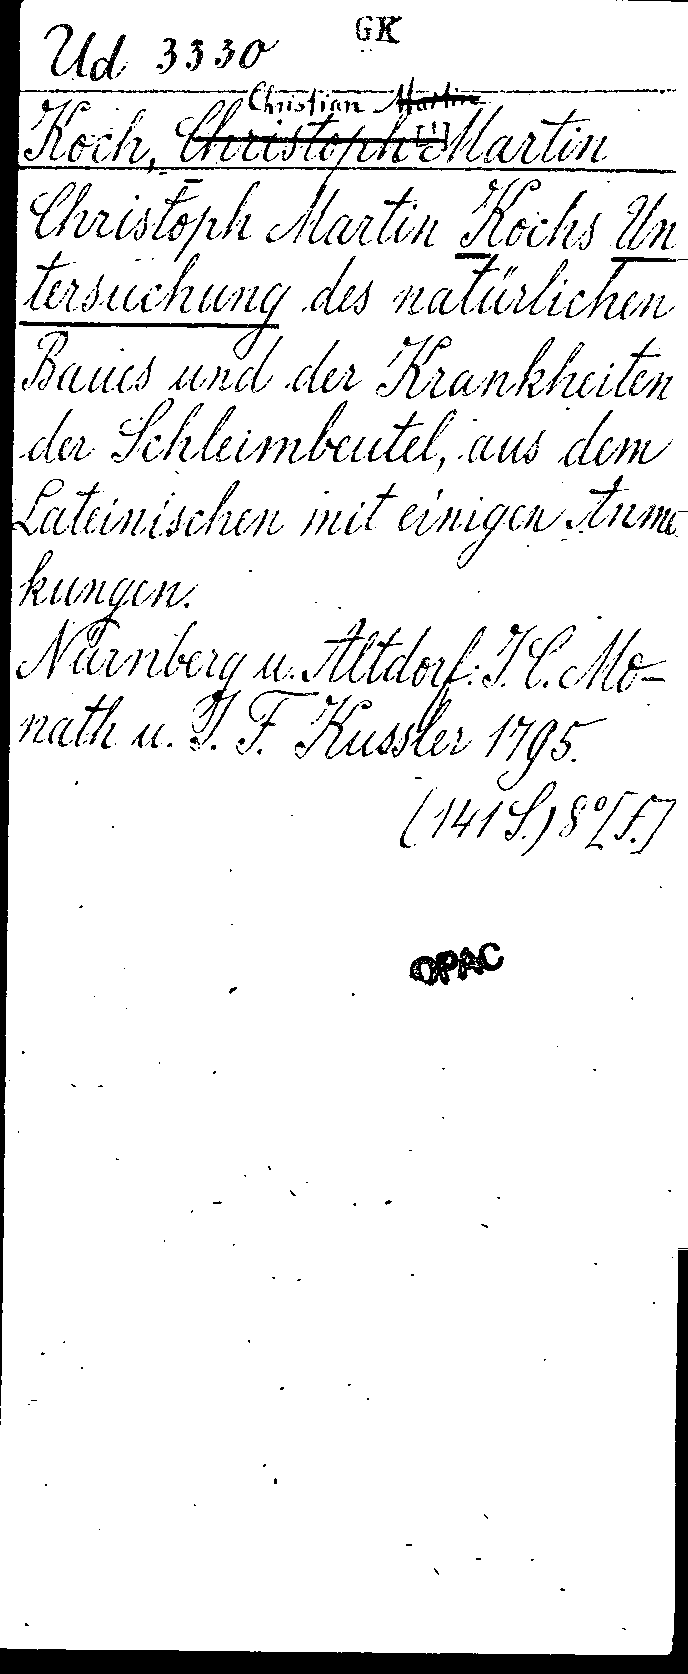 GK
Ud 3330
Christian Martin
Koch, Christoph [!] Martin
Christoph Martin Kochs Un
tersuchung des natürlichen
Baues und der Krankheiten
der Schleimbeutel, aus dem
Lateinischen mit einigen Anme
kungen.
Nürnberg u. Altdorf: J. C. Mo-
nath u. J. F. Kussler 1795.
(141 S.) 8° [F.]
OPAC